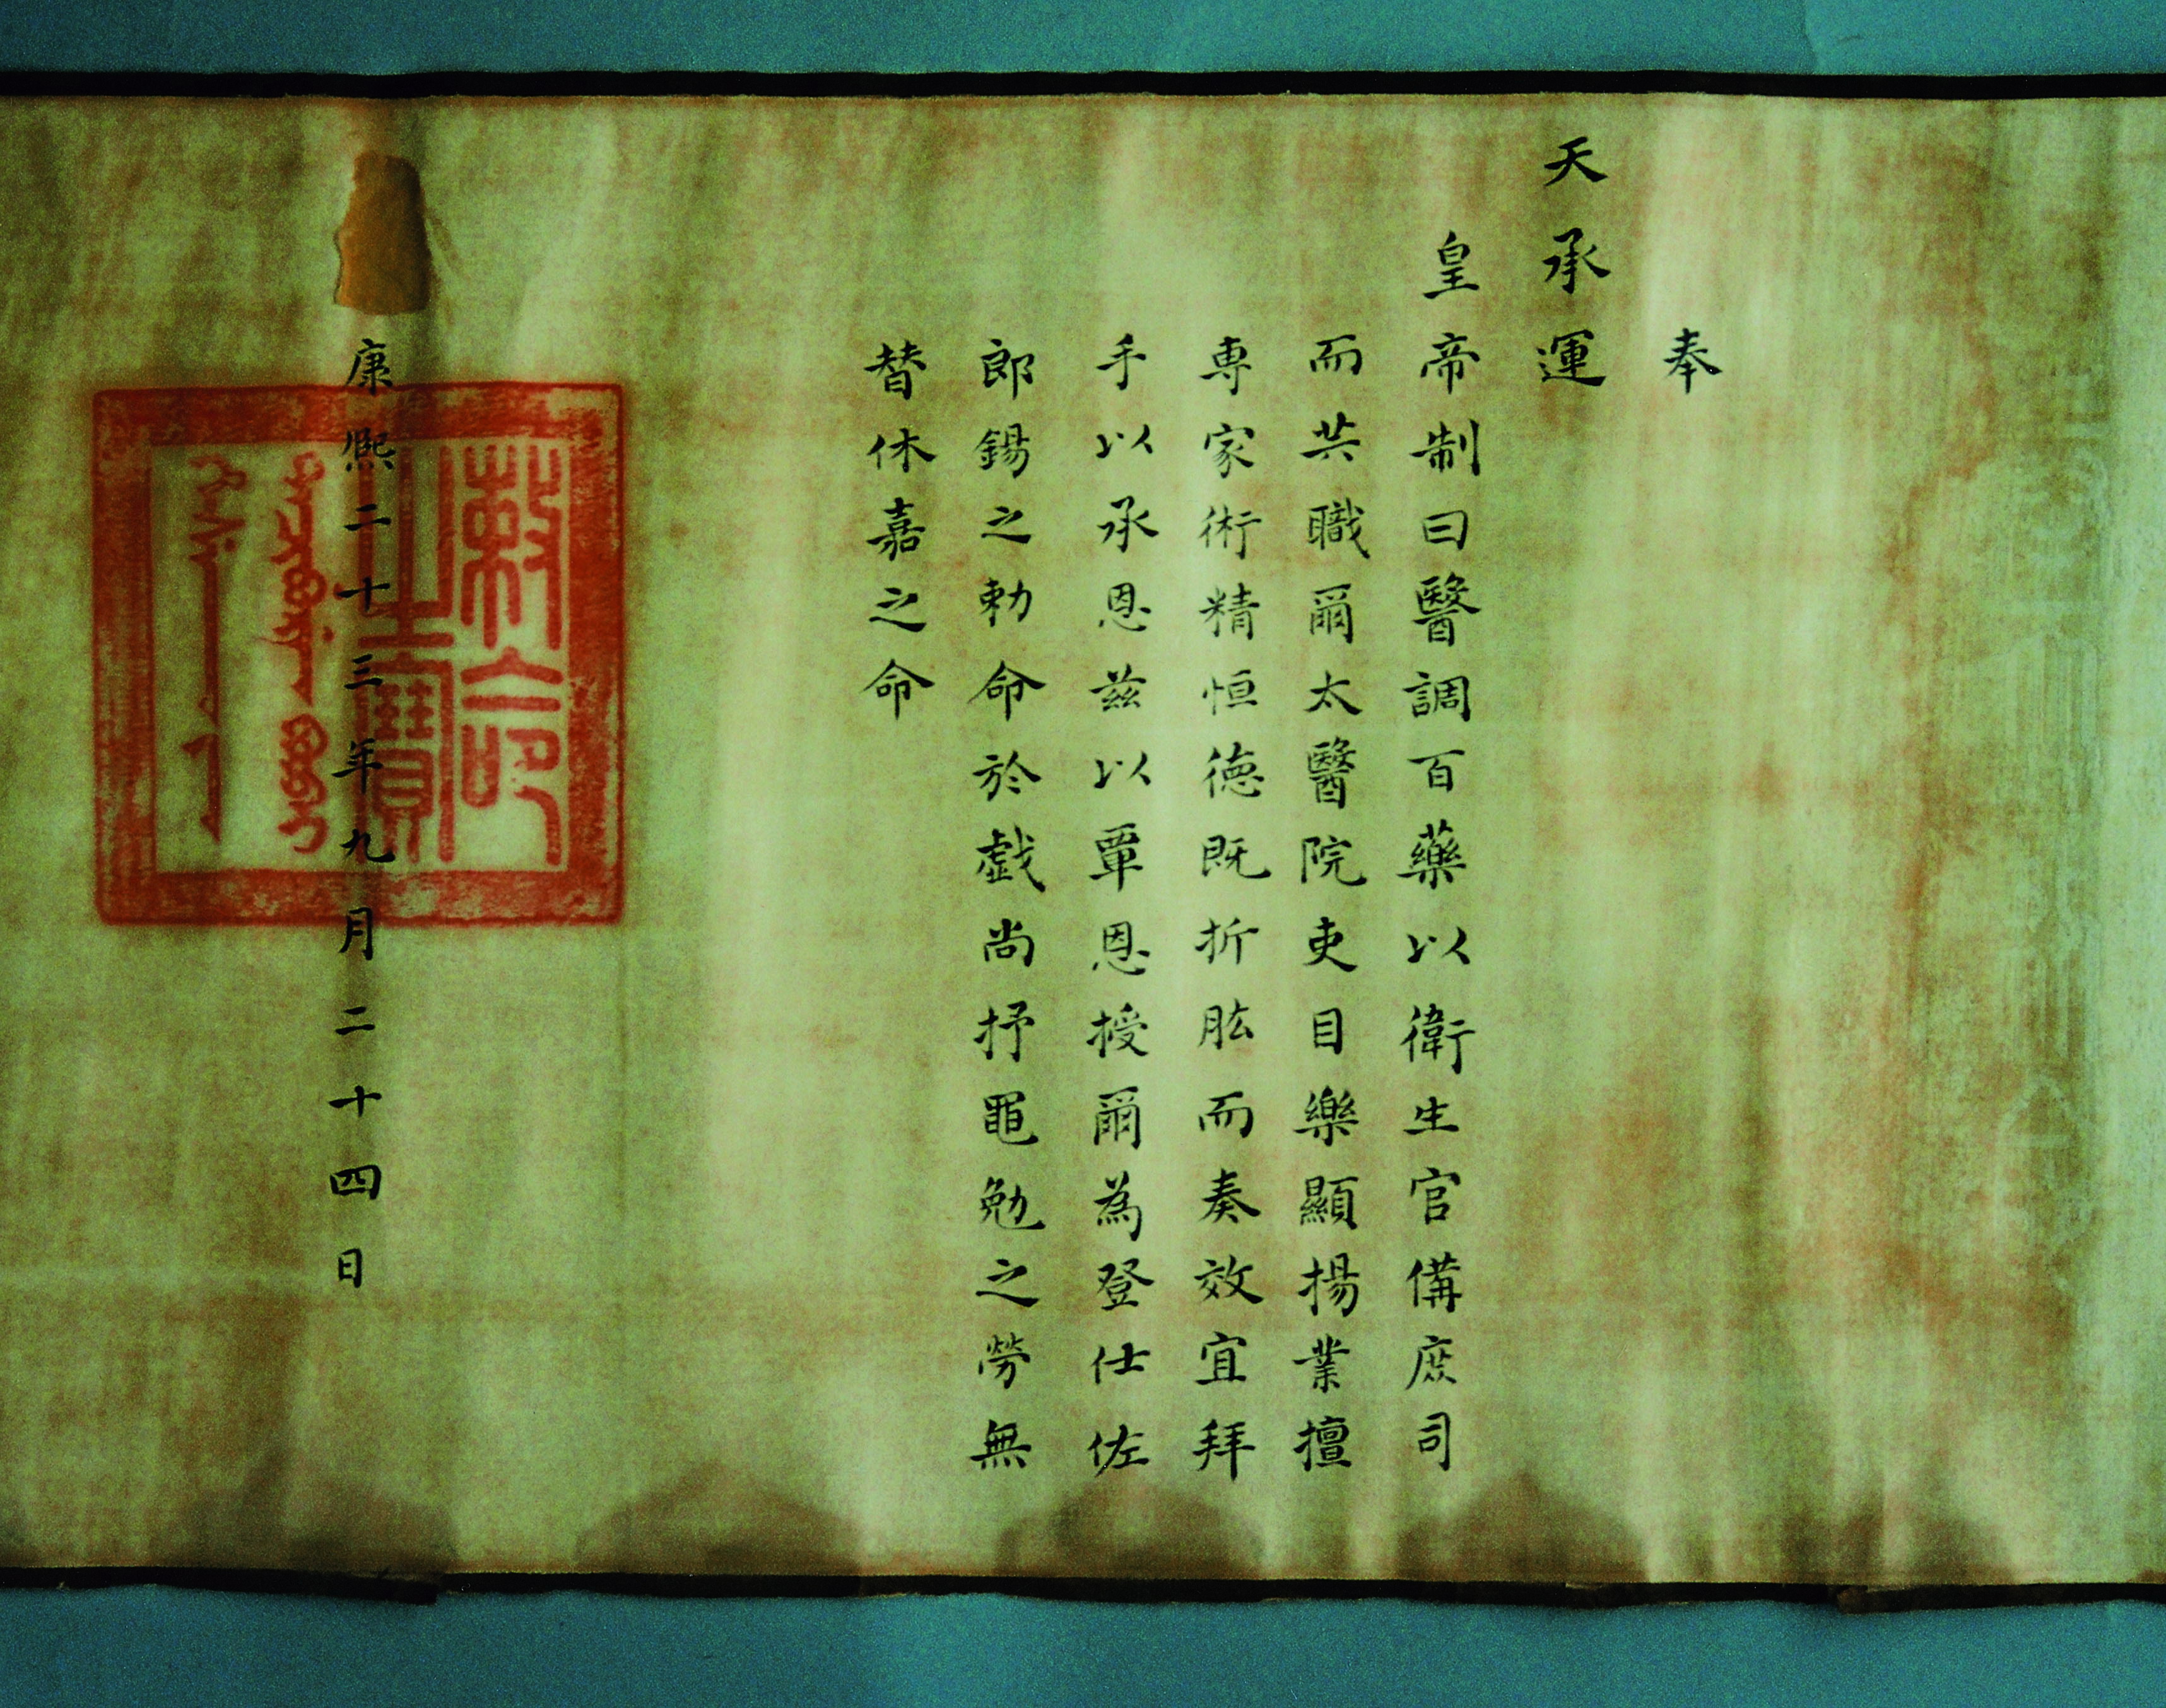 奉
天承運
皇帝制曰醫調百藥以衛生官備庶司
而共職爾太醫院吏目樂顯揚業擅
專家術精恒德既折肱而奏效宜拜
手以承恩茲以覃恩授爾為登仕佐
郎錫之勅命於戲尚抒黽勉之勞無
替休嘉之命
康熙二十三年九月二十四日
敕命
之寶